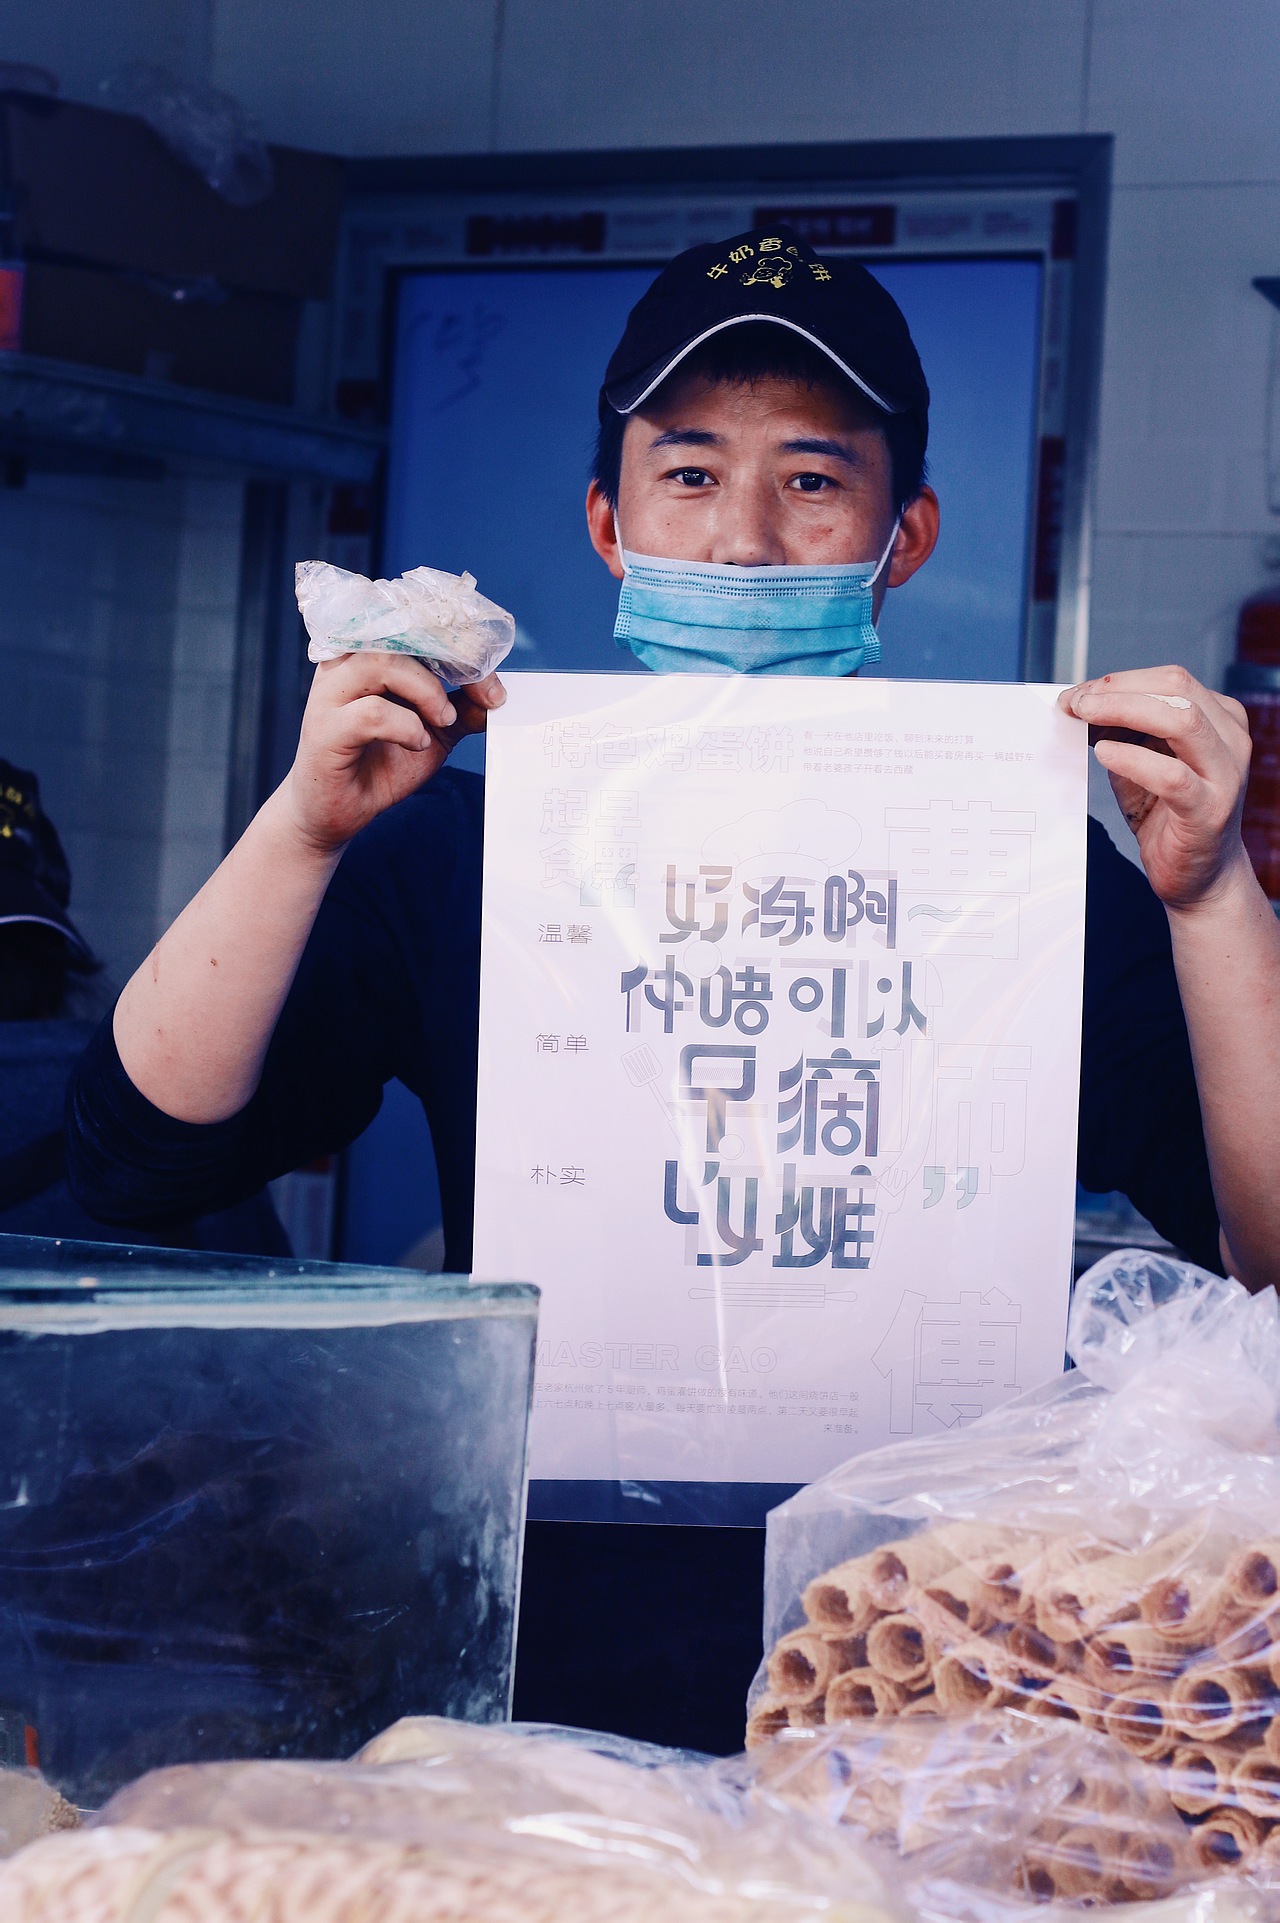 牛奶香
饼
特色鸡蛋饼
有一天在他店里吃饭，聊到未来的打算
他说自己希望攒够了钱以后能买套房再买一辆越野车
带着老婆孩子开着去西藏
起早
贪黑
曹
师
傅
温馨
简单
朴实
“
好冻啊
仲唔可以
早
收摊
”
MASTER CAO
在老家杭州做了5年厨师，鸡蛋灌饼做的很有味道。他们这间烧饼店一般
上六七点和晚上七点客人最多，每天要忙到凌晨两点，第二天又要很早起
来准备。